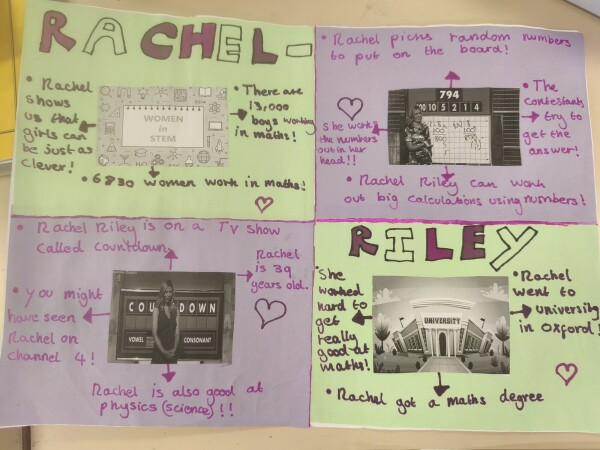 RACHEL-
• Rachel
shows
us that
girls can
be just as
clever!
WOMEN
in
STEM
• There are
13,000
boys working
in maths!
• 6830 women work in maths!
• Rachel picks random numbers
to put on the board!
794
100 10 5 2 1 4
• The
contestants
try to
get the
answer!
She works
the numbers
out in her
head!!
• Rachel Riley can work
out big calculations using numbers!
• Rachel Riley is on a TV show
called countdown.
Rachel
is 39
years old.
• You might
have seen
Rachel on
channel 4!
COU DOWN
VOWEL
CONSONANT
Rachel is also good at
physics (science)!!
RILEY
She
worked
hard to
get
really
good at
maths!
UNIVERSITY
• Rachel
went to
university
in Oxford!
• Rachel got a maths degree